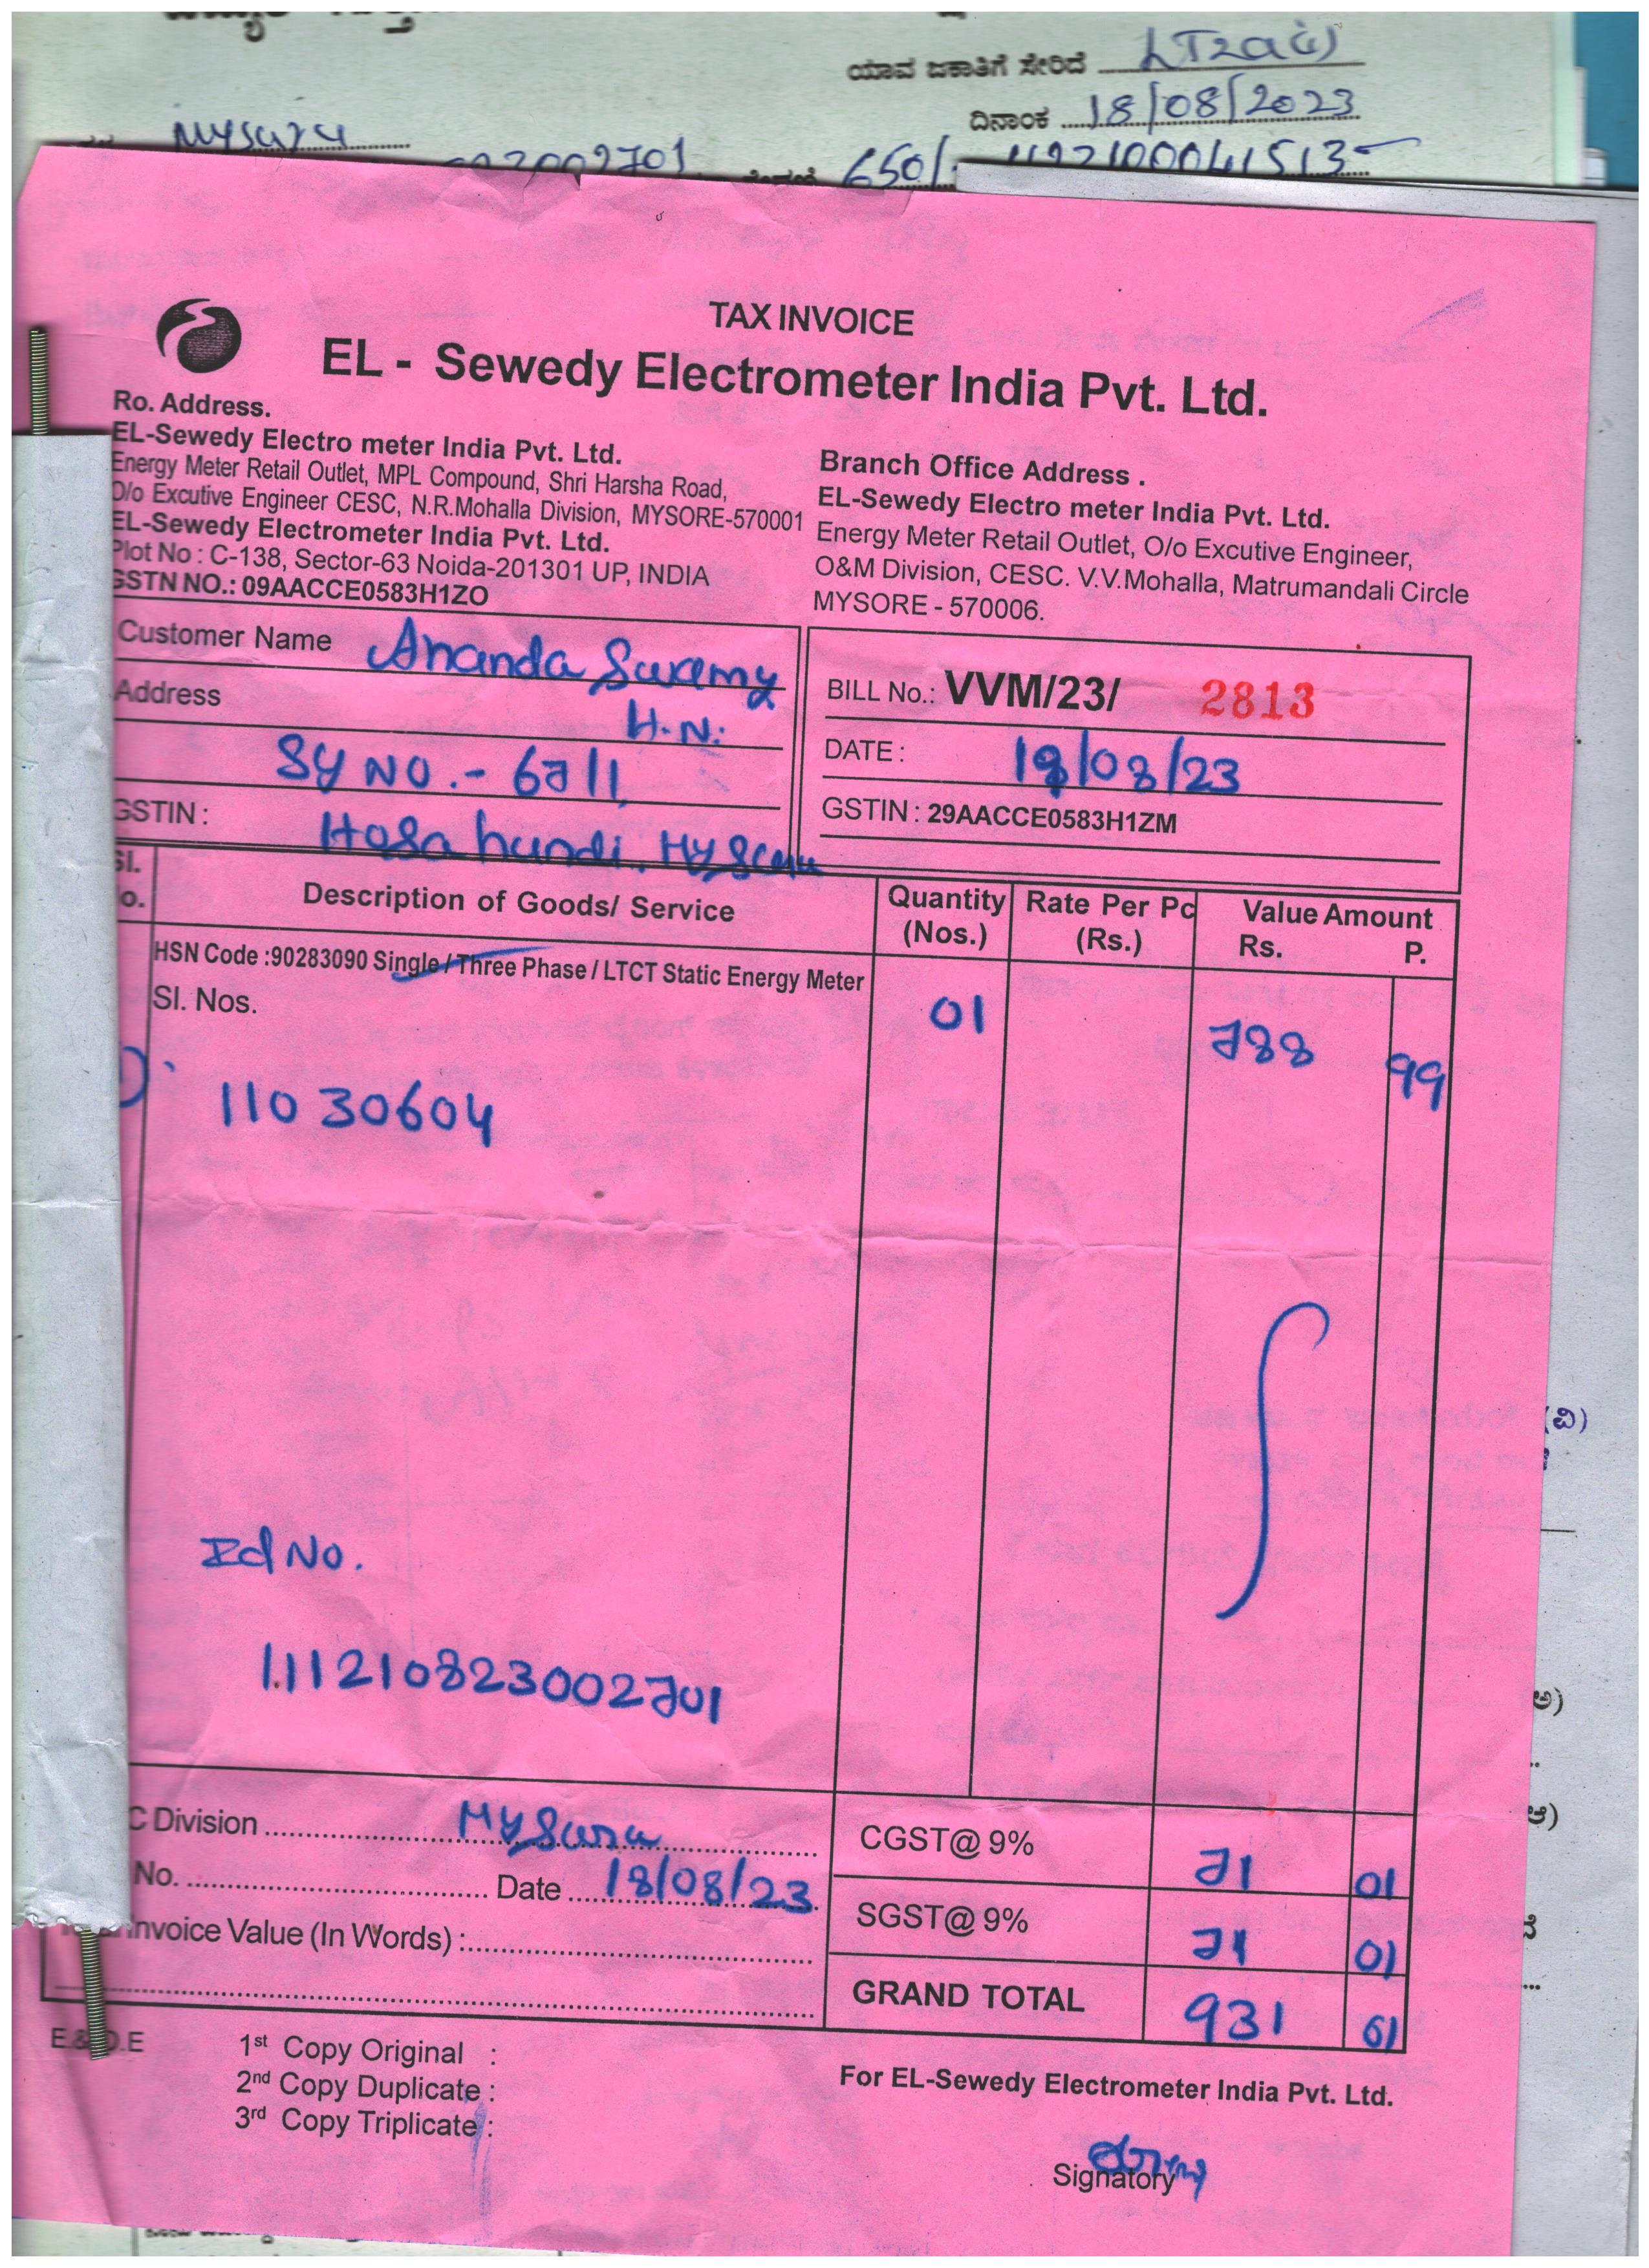 ಯಾವ ಜಕಾತಿಗೆ ಸೇರಿದೆ LT2a(i)
ದಿನಾಂಕ 18/08/2023
Mysuru
650/-
TAX INVOICE
EL - Sewedy Electrometer India Pvt. Ltd.
Ro. Address.
EL-Sewedy Electro meter India Pvt. Ltd.
Energy Meter Retail Outlet, MPL Compound, Shri Harsha Road,
O/o Excutive Engineer CESC, N.R.Mohalla Division, MYSORE-570001
EL-Sewedy Electrometer India Pvt. Ltd.
Plot No : C-138, Sector-63 Noida-201301 UP, INDIA
GSTN NO.: 09AACCE0583H1ZO
Branch Office Address .
EL-Sewedy Electro meter India Pvt. Ltd.
Energy Meter Retail Outlet, O/o Excutive Engineer,
O&M Division, CESC. V.V.Mohalla, Matrumandali Circle
MYSORE - 570006.
Customer Name Ananda Swamy
Address H.N.
SY NO.- 67/1,
GSTIN : Hosahundi. Mysuru
BILL No.: VVM/23/ 2813
DATE : 18/08/23
GSTIN : 29AACCE0583H1ZM
Sl. No. Description of Goods/ Service Quantity (Nos.) Rate Per Pc (Rs.) Value Amount Rs. P.
HSN Code :90283090 Single / Three Phase / LTCT Static Energy Meter
Sl. Nos. 01 788 99
11030604
Id No.
111210823002701
C Division Mysuru
No. Date 18/08/23
Invoice Value (In Words) :
CGST@ 9% 71 01
SGST@ 9% 71 01
GRAND TOTAL 931 01
E.& O.E
1st Copy Original :
2nd Copy Duplicate :
3rd Copy Triplicate :
For EL-Sewedy Electrometer India Pvt. Ltd.
Signatory
(ವಿ)